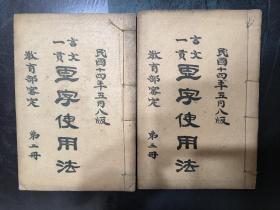 民國十四年五月八版
言文
一貫
虛字使用法
教育部審定
民國十四年五月八版
言文
一貫
虛字使用法
教育部審定